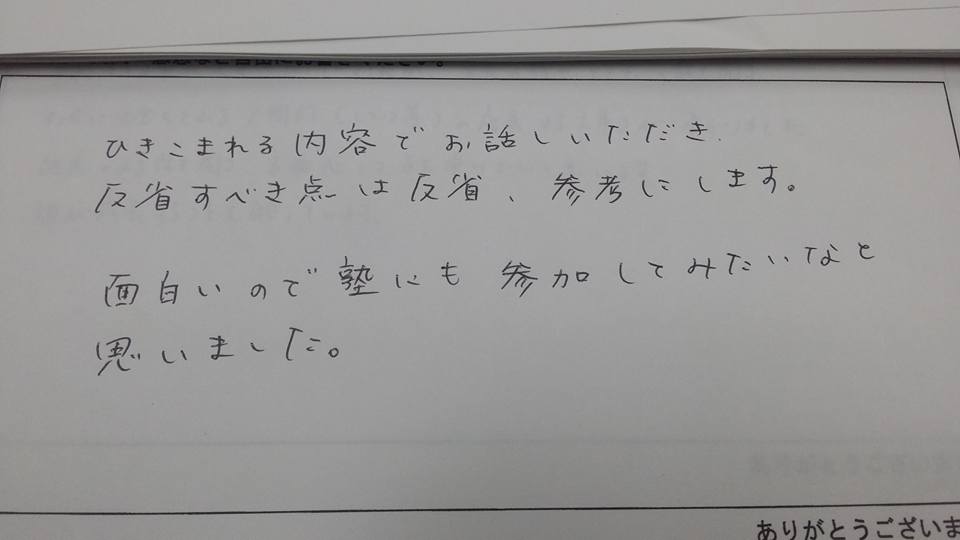 ひきこまれる内容でお話しいただき、
反省すべき点は反省、参考にします。
面白いので塾にも参加してみたいなと
思いました。
ありがとうございま